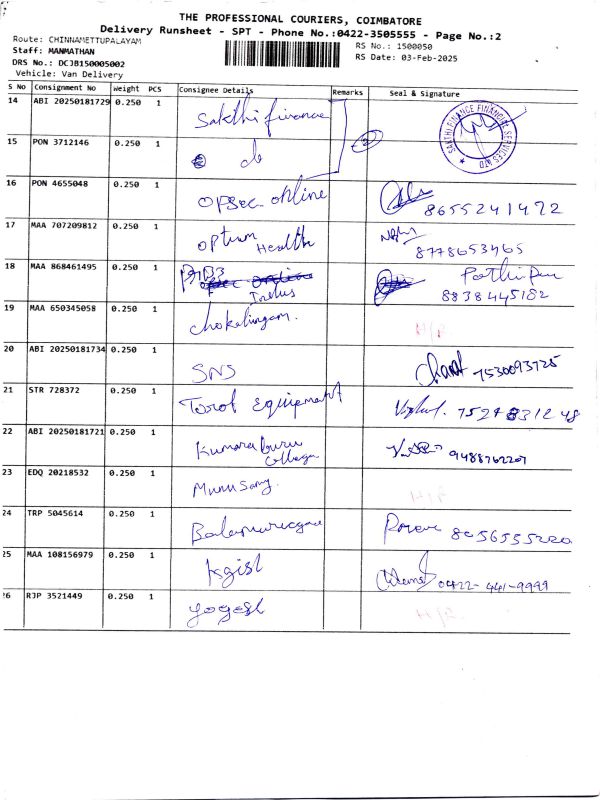 THE PROFESSIONAL COURIERS, COIMBATORE
Delivery Runsheet - SPT - Phone No.:0422-3505555 - Page No.:2
Route: CHINNAMETTUPALAYAM
Staff: MANMATHAN
DRS No.: DCJB150005002
Vehicle: Van Delivery
RS No.: 1500050
RS Date: 03-Feb-2025
S No Consignment No Weight PCS Consignee Details Remarks Seal & Signature
14 ABI 20250181729 0.250 1 Sakthi finance
SAKTHI FINANCE FINANCIAL SERVICES LTD
15 PON 3712146 0.250 1 do
16 PON 4655048 0.250 1 opsec online 8655241472
17 MAA 707209812 0.250 1 optum Health 8778653465
18 MAA 868461495 0.250 1 8838445182
19 MAA 650345058 0.250 1 chokalingam. H/R
20 ABI 20250181734 0.250 1 SNS 7530093725
21 STR 728372 0.250 1 Equipment
22 ABI 20250181721 0.250 1 Kumaraguru College 9488762207
23 EDQ 20218532 0.250 1 Munusamy. H/R
24 TRP 5045614 0.250 1
25 MAA 108156979 0.250 1 kgisl 0422-441-9999
26 RJP 3521449 0.250 1 yogesh H/R